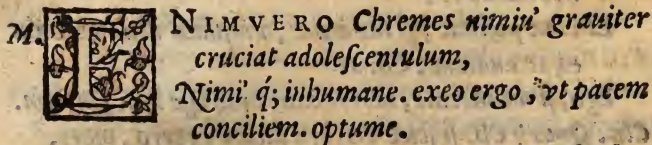 M. ENIMVERO Chremes nimiu' grauiter
cruciat adoleſcentulum,
Nimi' q́; inhumane. exeo ergo, vt pacem
conciliem. optume.